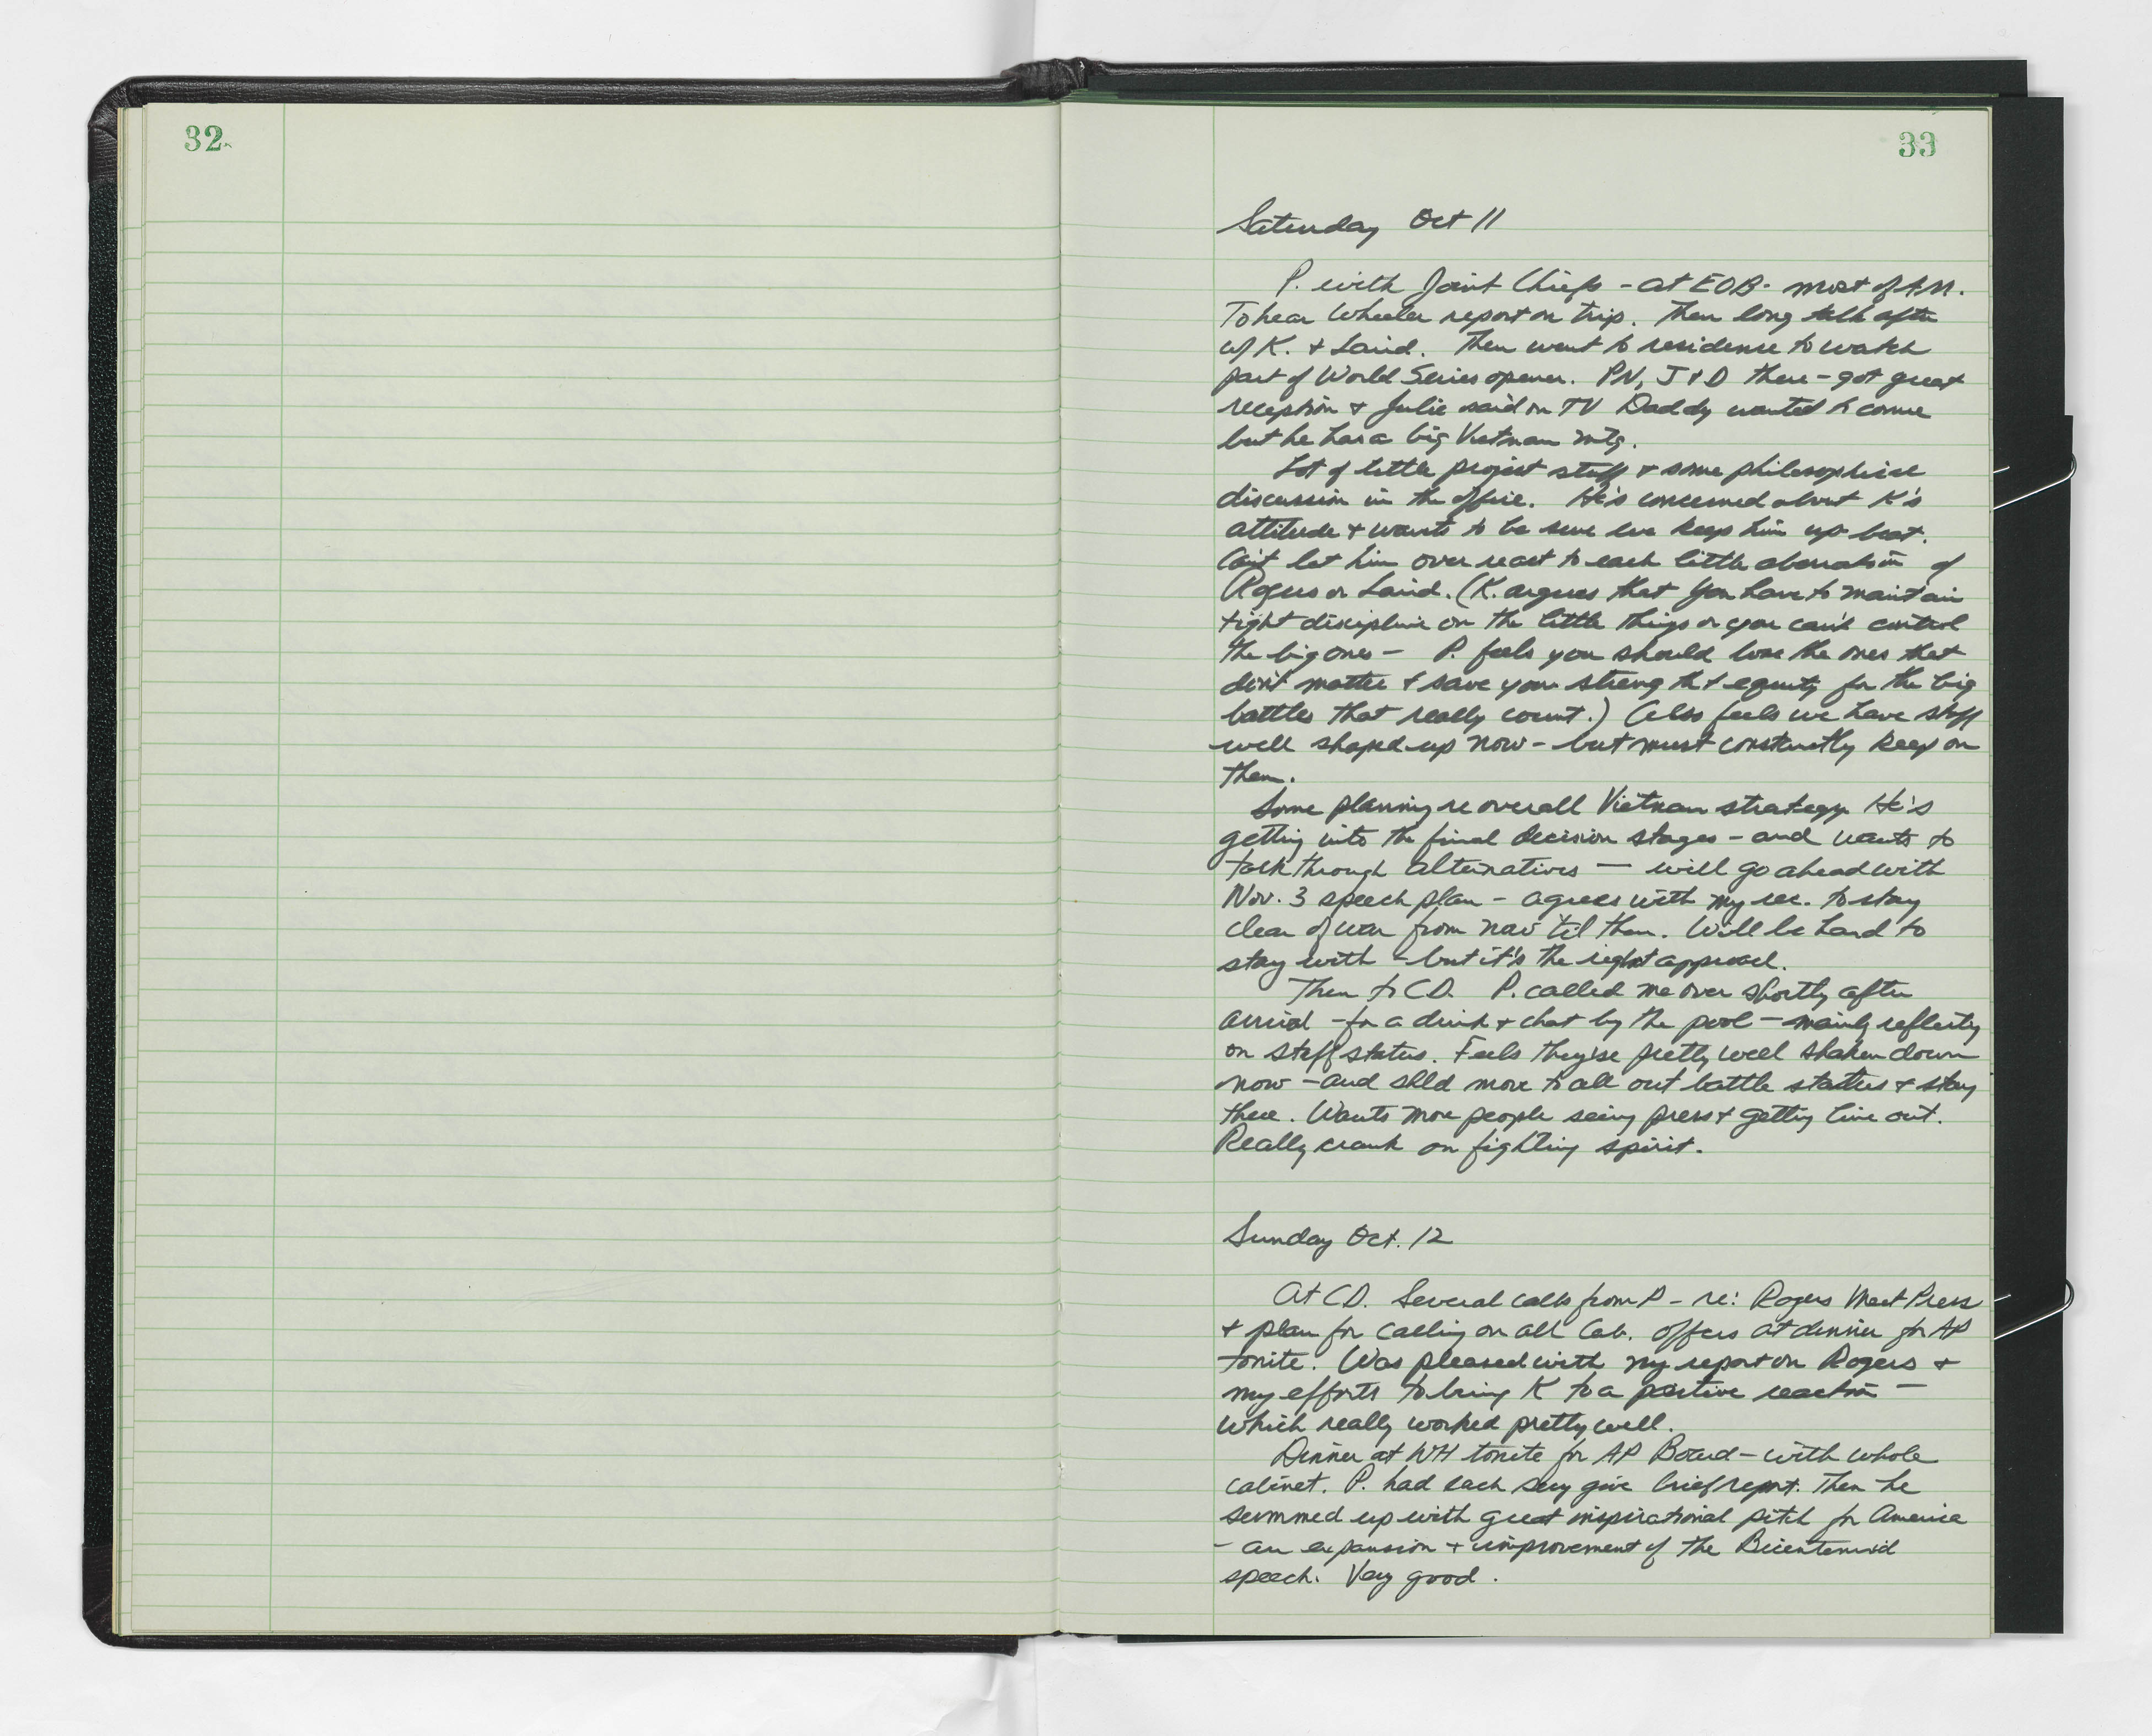 32
33
Saturday Oct 11
P. with Joint Chiefs - at EOB - most of AM.
To hear Wheeler report on trip. Then long talk after
w/ K. + Laird. Then went to residence to watch
part of World Series opener. PN, J + D there - got great
reception + Julie said on TV Daddy wanted to come
but he has a big Vietnam mtg.
Lot of little project stuff + some philosophical
discussion in the office. He's concerned about K's
attitude + wants to be sure we keep him up beat.
Can't let him over react to each little aberration of
Rogers or Laird. (K. argues that you have to maintain
tight discipline on the little things or you can't control
the big ones - P. feels you should lose the ones that
don't matter + save your strength + equity for the big
battles that really count.) Also feels we have staff
well shaped up now - but must constantly keep on
them.
Some planning re overall Vietnam strategy. He's
getting into the final decision stages - and wants to
talk through alternatives — will go ahead with
Nov. 3 speech plan - agrees with my rec. to stay
clear of war from now 'til then. Will be hard to
stay with - but it's the right approach.
Then to CD. P. called me over shortly after
arrival - for a drink + chat by the pool - mainly reflecting
on staff status. Feels they're pretty well shaken down
now - and shld move to all out battle status + stay
there. Wants more people seeing press + getting line out.
Really crank on fighting spirit.
Sunday Oct. 12
At CD. Several calls from P - re: Rogers Meet Press
+ plan for calling on all Cab. offcrs at dinner for AP
tonite. Was pleased with my report on Rogers +
my efforts to bring K to a positive reaction -
which really worked pretty well.
Dinner at WH tonite for AP Board - with whole
cabinet. P. had each Secy give brief report. Then he
summed up with great inspirational pitch for America
- an expansion + improvement of the Bicentennial
speech. Very good.